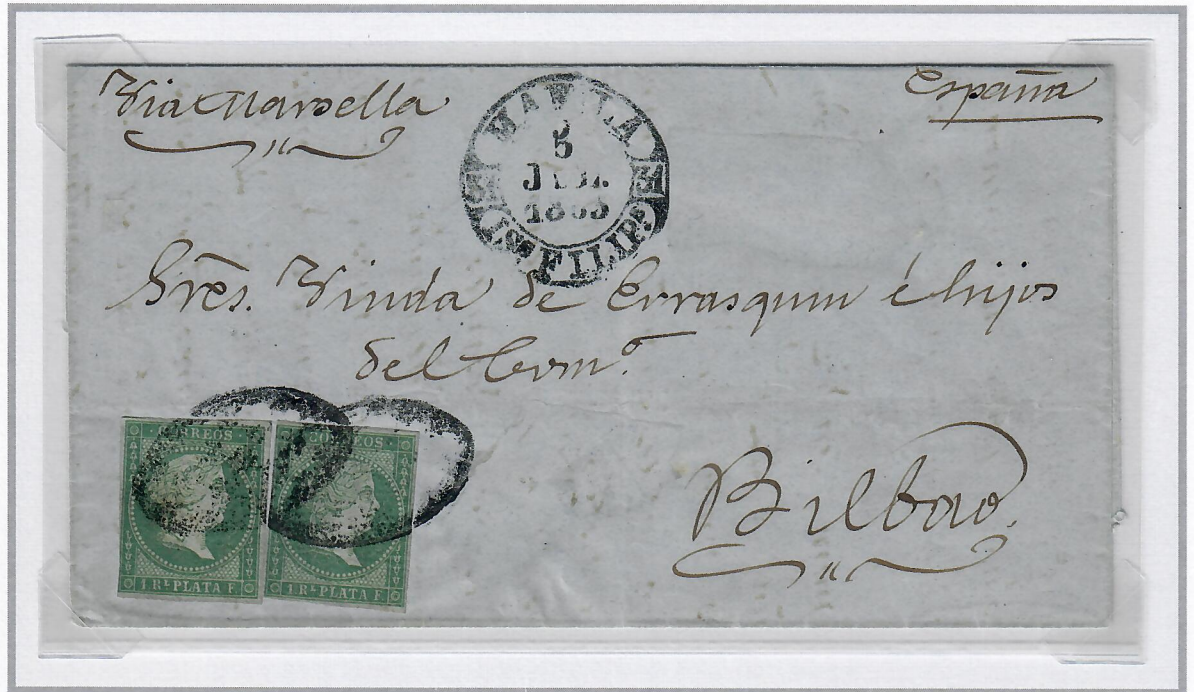 Via Marsella
España
MANILA
5
JUL.
1863
(Sˢ FILIPˢ)
Sres. Viuda de Errasquin é hijos
del Comº.
Bilbao.
CORREOS
CORREOS
1 Rˡ PLATA F.
1 Rˡ PLATA F.